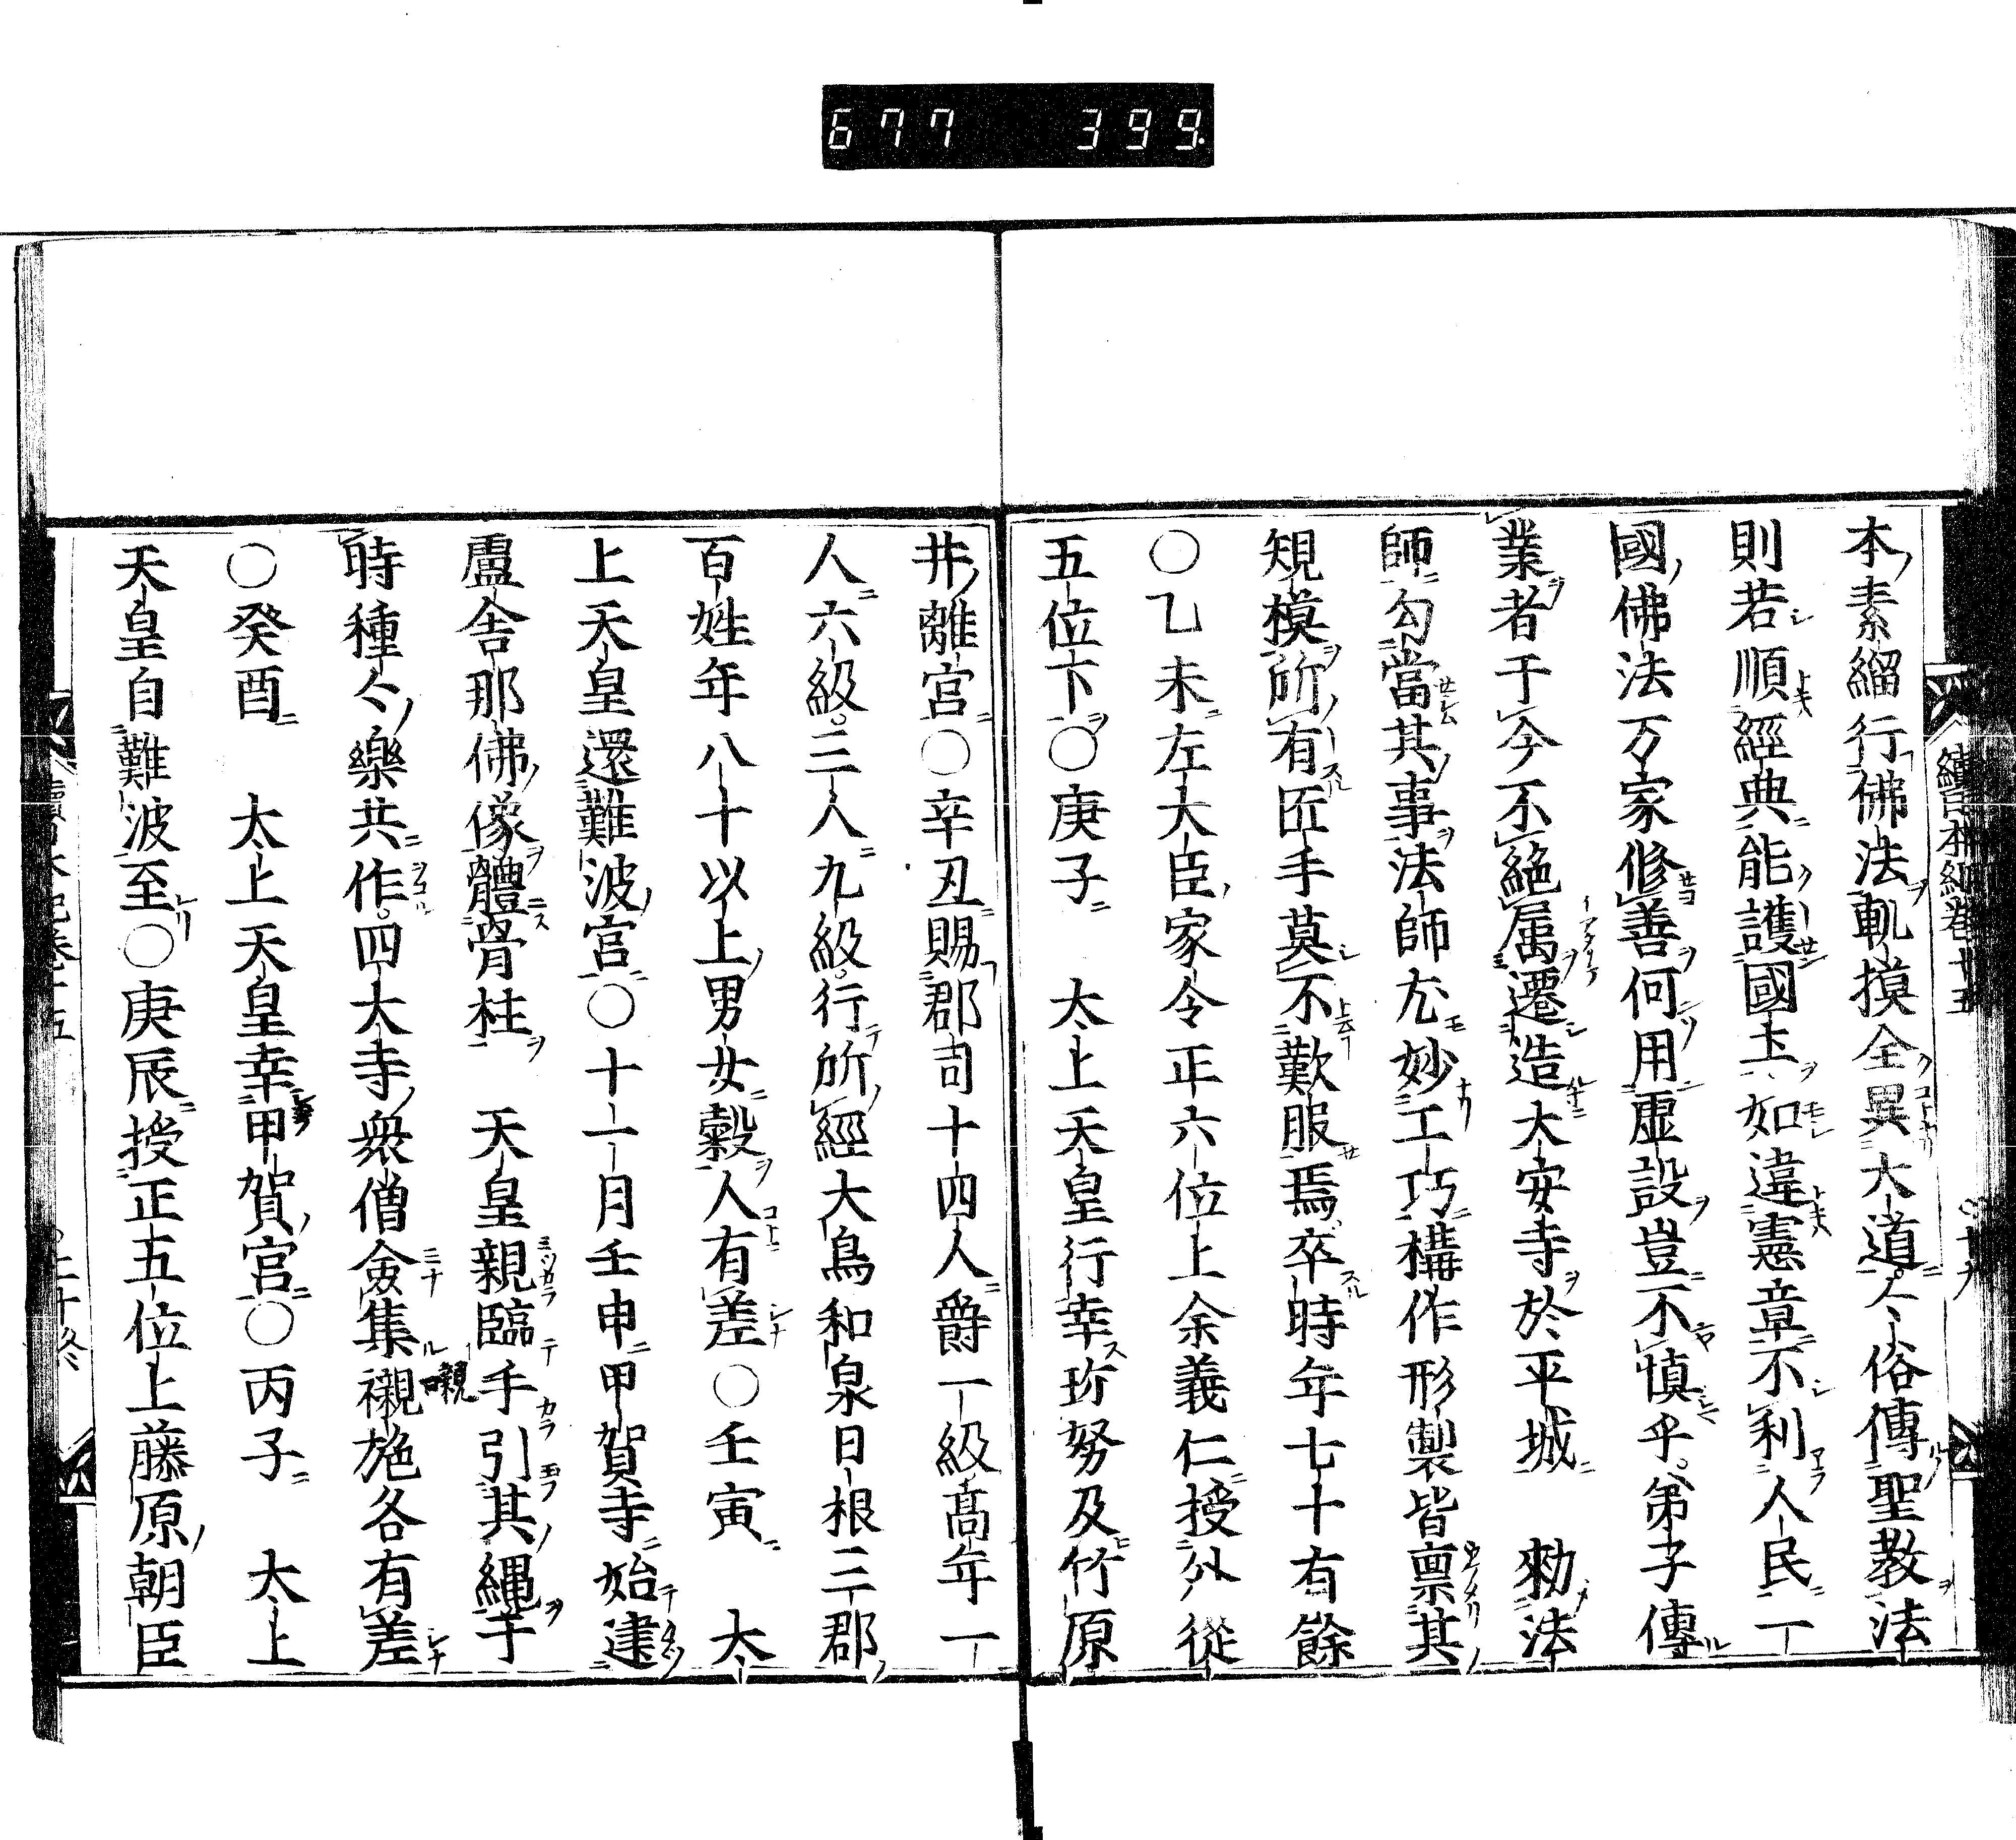 677 399
本素緇行佛法軌摸全異大道人俗傳聖教法
則若順經典能護國土如違憲章不利人民一
國佛法万家修善何用虚設豈不慎乎弟子傳
業者于今不絕属遷造大安寺於平城 勅法
師勾當其事法師尤妙工巧構作形製皆禀其
䂓模所有匠手莫不歎服焉卒時年七十有餘
○乙未左大臣家令正六位上余義仁授外從
五位下○庚子 太上天皇行幸珍努及竹原
井離宮○辛丑賜郡司十四人爵一級髙年一
人六級三人九級行所經大鳥和泉日根三郡
百姓年八十以上男女穀人有差○壬寅 太
上天皇還難波宮○十一月壬申甲賀寺始建
盧舎那佛像體骨柱 天皇親臨手引其繩于
時種々樂共作四大寺衆僧僉集襯施各有差
○癸酉 太上天皇幸甲賀宮○丙子 太上
天皇自難波至○庚辰授正五位上藤原朝臣